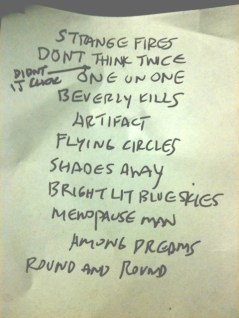 STRANGE FIRES
DONT THINK TWICE
DIDNT IT CLICK
ONE ON ONE
BEVERLY KILLS
ARTIFACT
FLYING CIRCLES
SHADES AWAY
BRIGHT LIT BLUE SKIES
MENOPAUSE MAN
AMONG DREAMS
ROUND AND ROUND